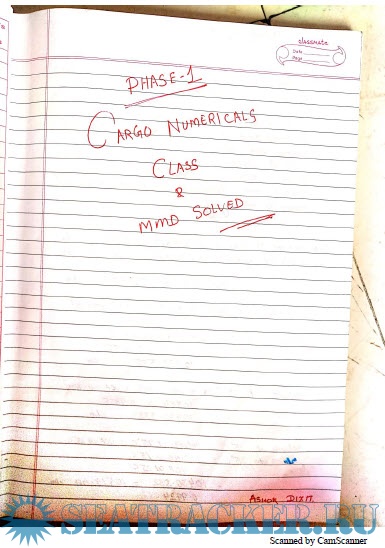 classmate
Date
Page
PHASE-1
CARGO NUMERICALS
CLASS
&
MMD SOLVED
ASHOK DIXIT.
SEATRACKER.RU
Scanned by CamScanner